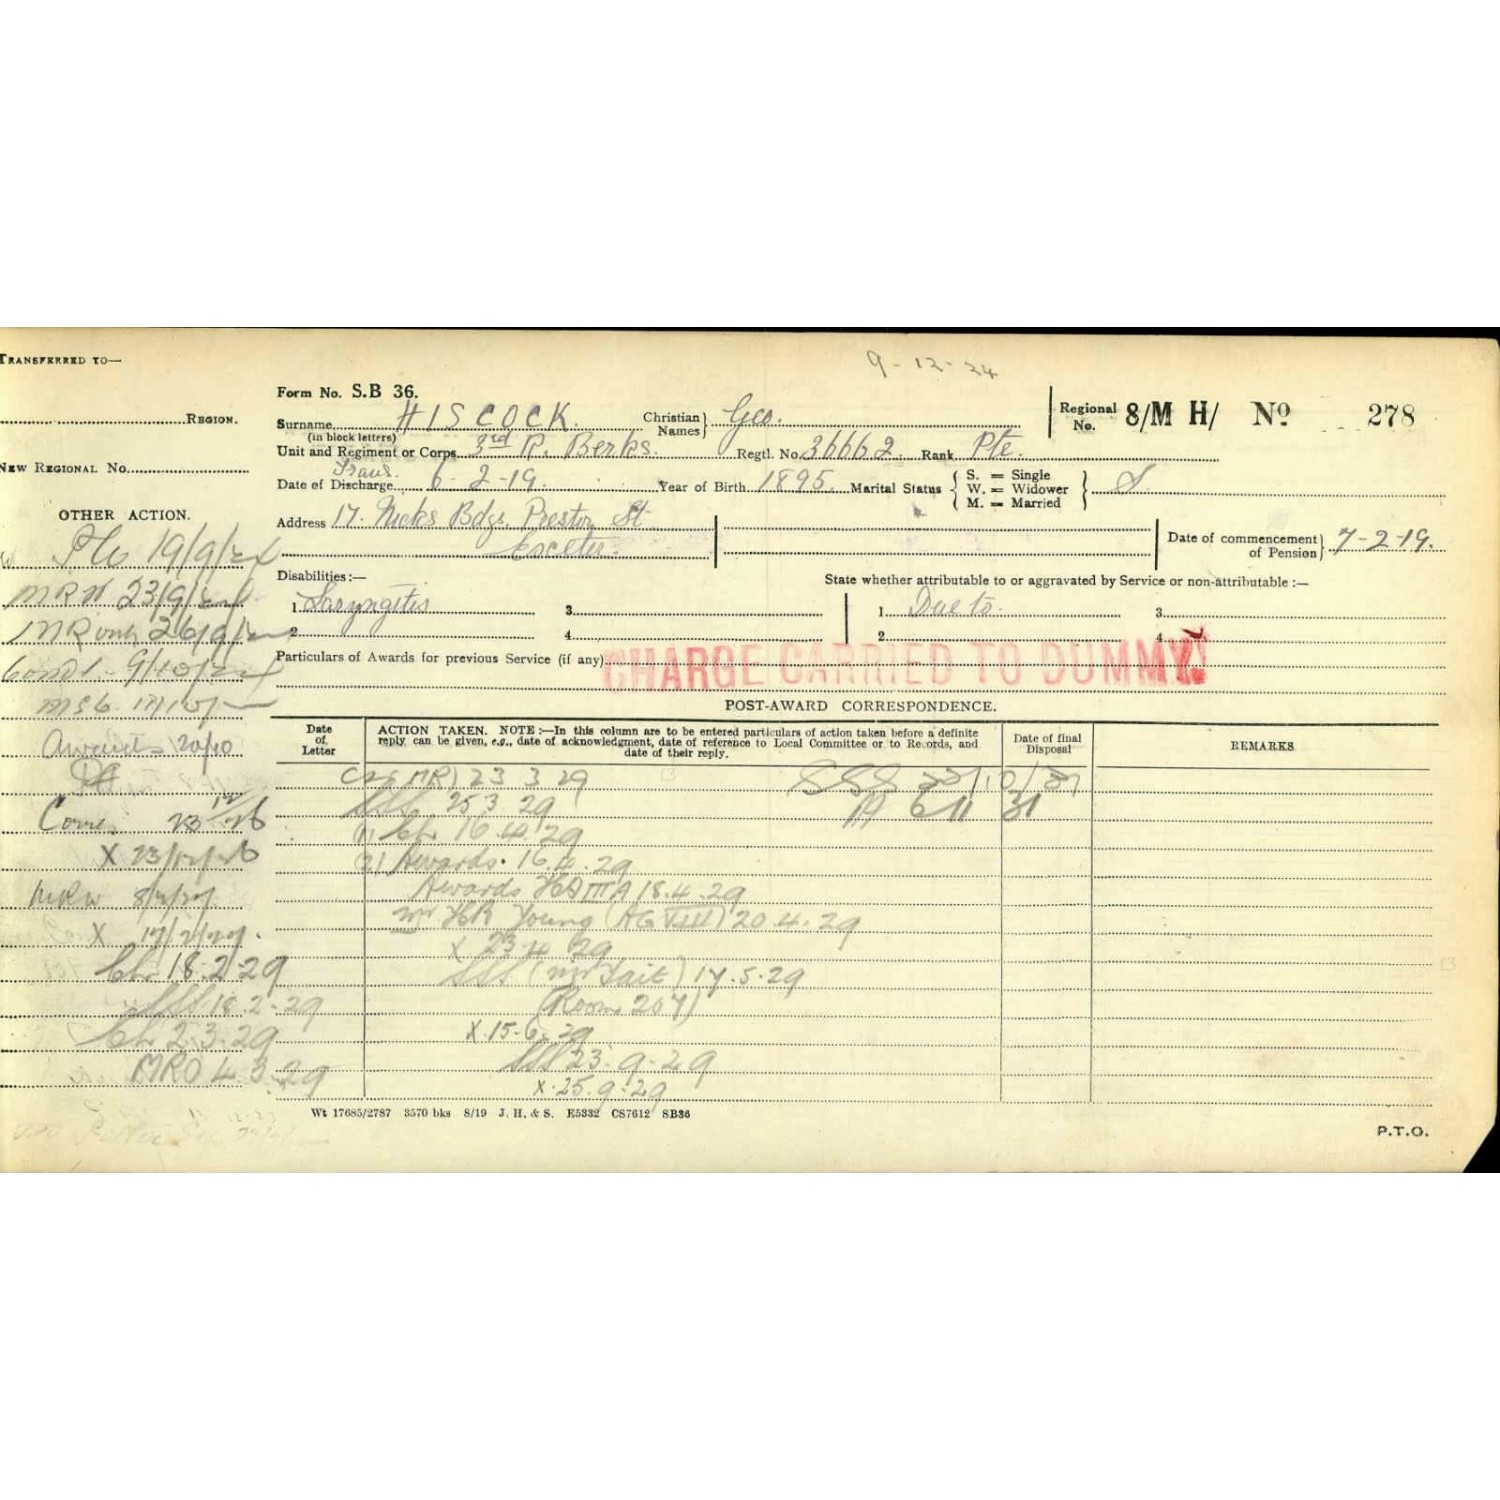 TRANSFERRED TO—
9-12-24
REGION.
NEW REGIONAL No.
OTHER ACTION.
19/9/24
MRH 23/9/24
9/10/24
Awards 20/10
23/12/26
X 23/12/26
X 17/2/27.
Ch 18.2.29
SSS 18.2.29
Ch 2.3.29
MRO 4 3.29
Form No. S.B 36.
Surname HISCOCK. Christian Names} Geo. Regional No. 8/M H/ No 278
(in block letters)
Unit and Regiment or Corps 3rd R. Berks. Regtl. No. 36662 Rank Pte.
Date of Discharge 6-2-19. Year of Birth 1895. Marital Status { S. = Single W. = Widower M. = Married } S.
Address 17. Nicks Bdgs. Preston St
Exeter.
Date of commencement of Pension} 7-2-19.
Disabilities:— State whether attributable to or aggravated by Service or non-attributable:—
1. Laryngitis 3. 1. Due to. 3.
2. 4. 2. 4.
Particulars of Awards for previous Service (if any)
CHARGE CARRIED TO DUMMY.
POST-AWARD CORRESPONDENCE.
Date of Letter
ACTION TAKEN. NOTE:—In this column are to be entered particulars of action taken before a definite
reply can be given, e.g., date of acknowledgment, date of reference to Local Committee or to Records, and
date of their reply.
Date of final Disposal
REMARKS
23 3 29 SSS
SSS 25 3 29 6 11 31
(1) Ch 16.4.29
(2) Awards. 16.4.29
Awards 18.4.29
Mr HR Young (AG VIII) 20.4.29
X 23 4 29
SSS (Mr Tait) 17.5.29
(Room 207)
X.15-6.29
SSS 23.9.29
X.25.9.29
Wt 17685/2787 3570 bks 8/19 J. H. & S. E5332 CS7612 SB36
P.T.O.